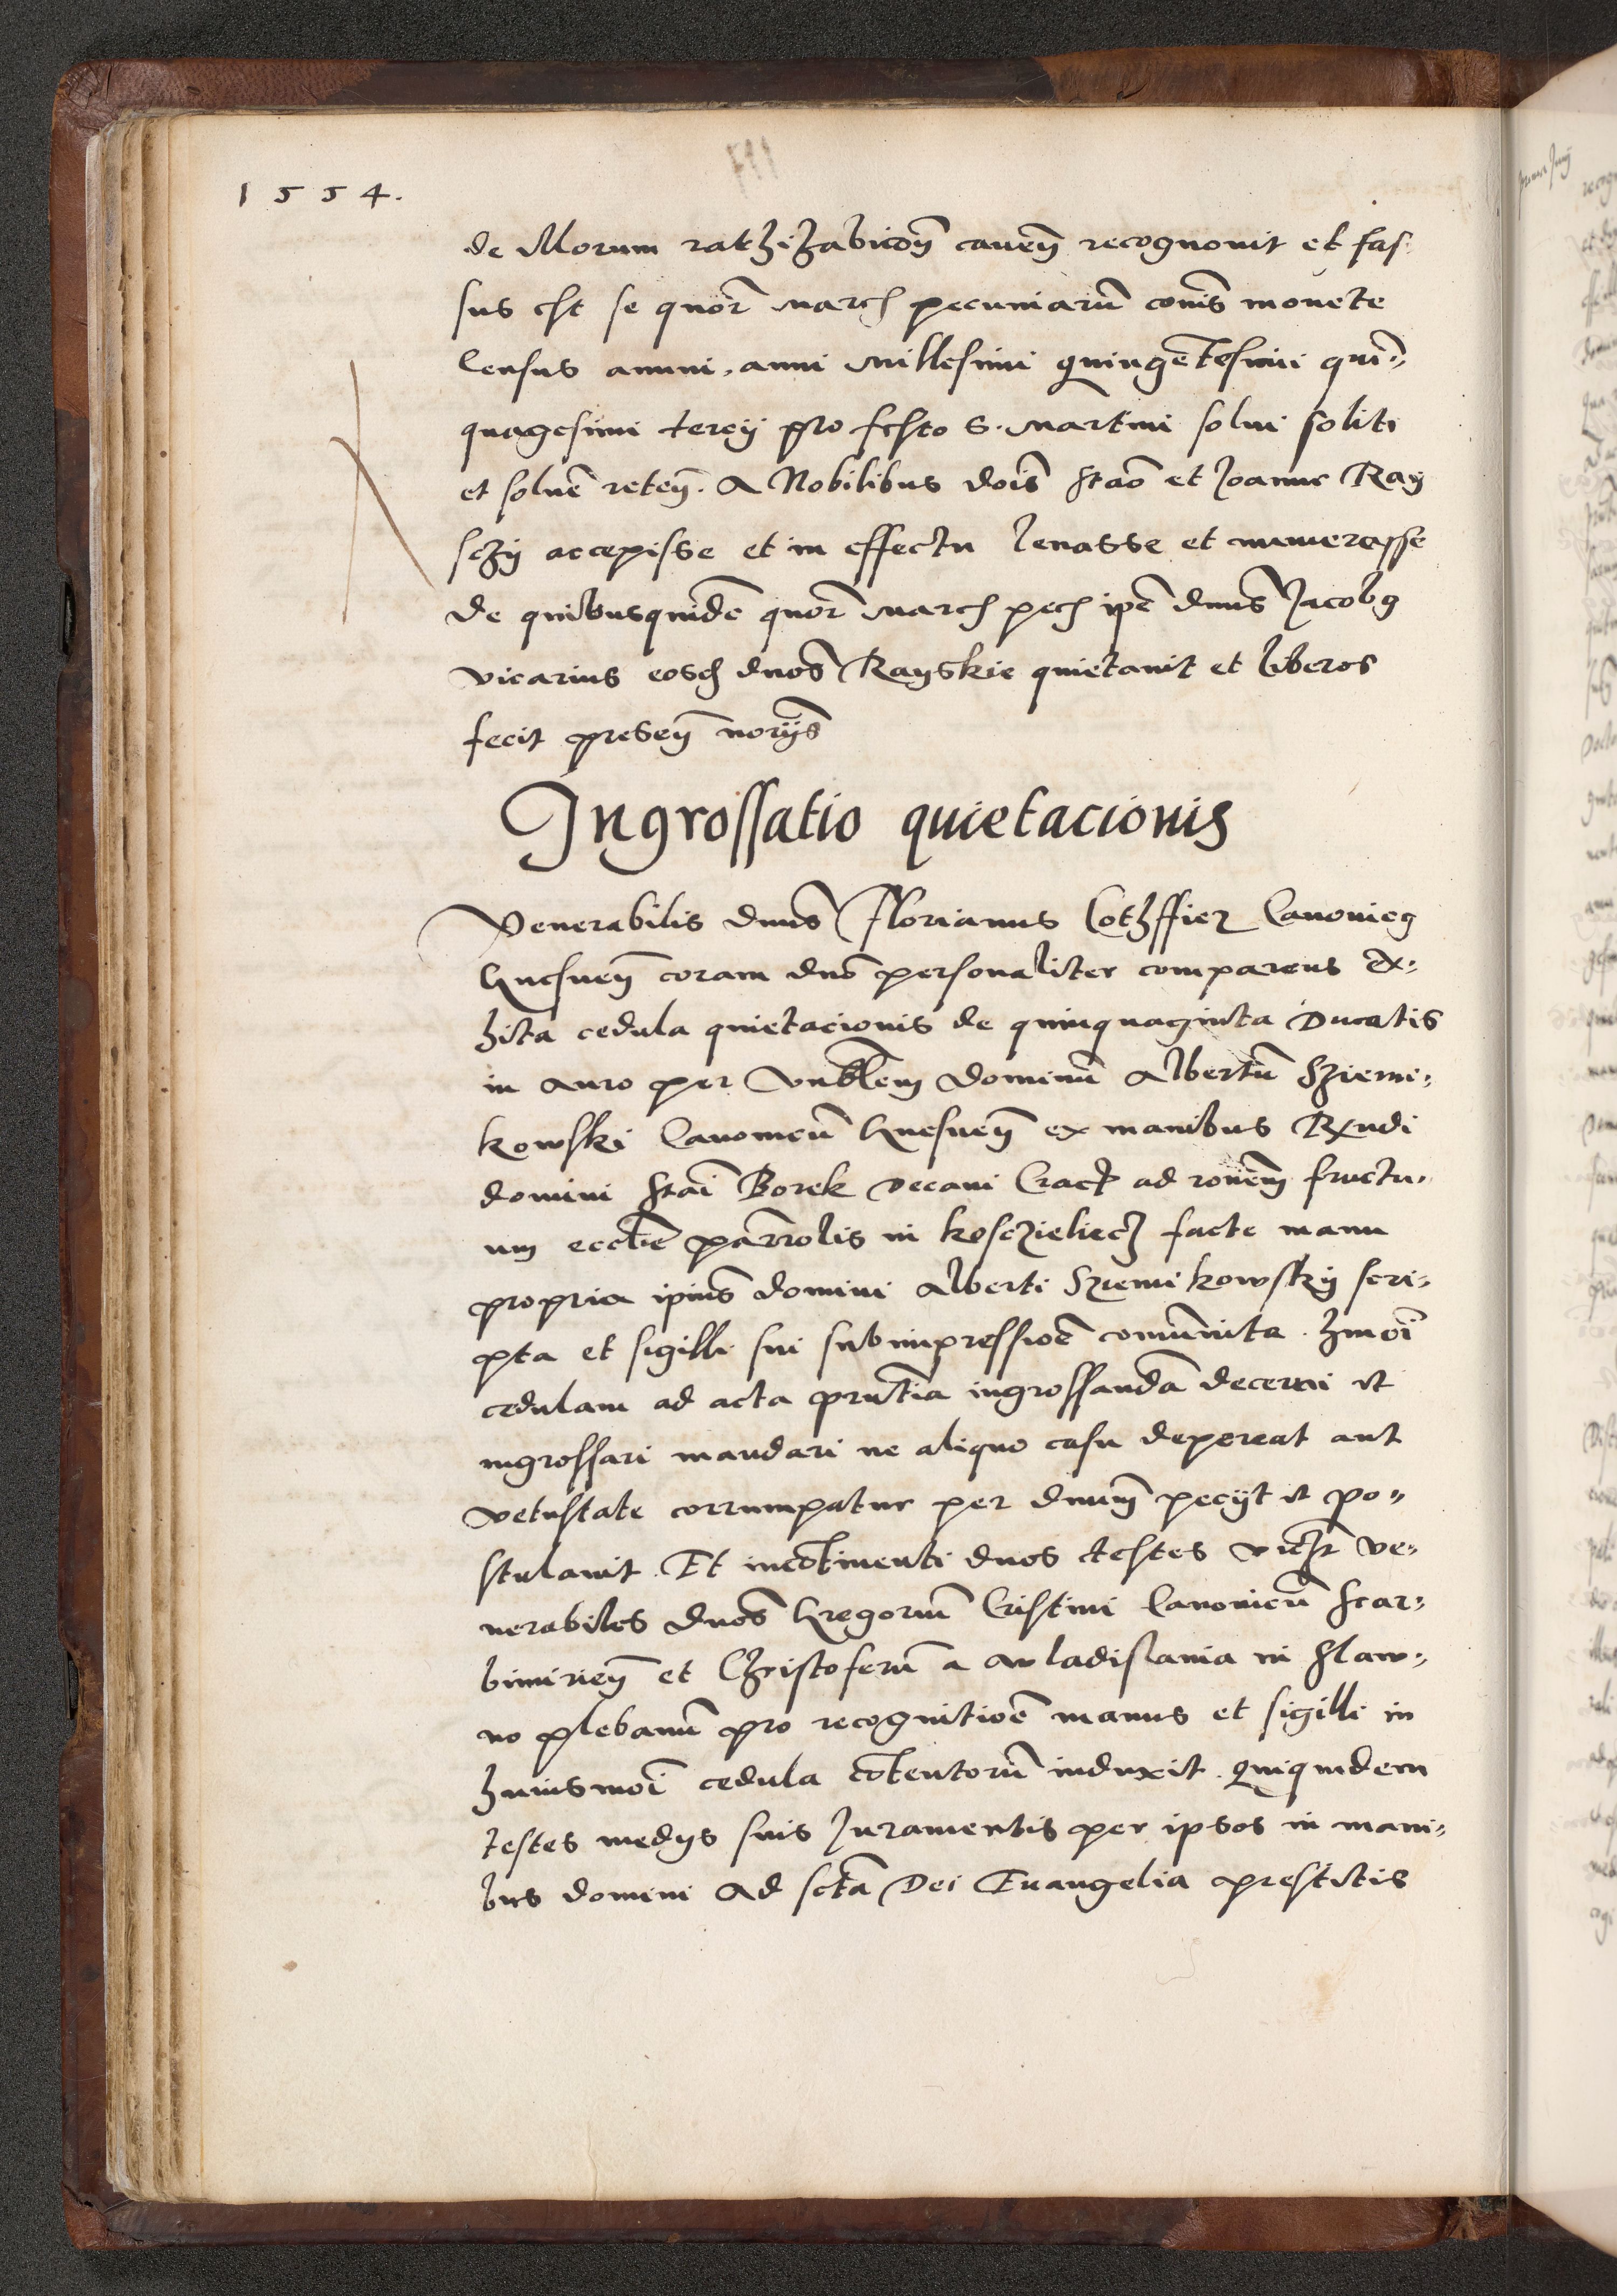 1554.
de Morum ratihabitioñ caveñ recognovit et fas-
sus est se quor̃ march pecuniarũ com̃is monete
Census annui, anni millesimi quingẽtesimi quĩ-
quagesimi tercij pro festo S. Martini solvi soliti
et solvẽ reteñ. A Nobilibus dõis Stão et Joanne Ray
sczij accepisse et in effectu levasse et numerasse
de quibusquidẽ quor̃ march pecz ipẽ dnus Jacobg
vicarius eosd dnos̃ Rayskie quietavit et liberos
fecit preseñ norijs̃
Ingrossatio quietacionis
Venerabilis dnus̃ Florianus Cothfficz Canonicg
Gnesneñ coram dnõ personaliter comparens ex-
hita cedula quietacionis de quinquaginta Ducatis
in auro per Vnblem̃ dominũ Albertũ Sziemi-
kowski Canonicũ Gnesneñ ex manibus Rxndi
domini Stãi Borek decani Crac ad rõnem̃ fructu-
um eccliẽ parrõlis in Kosczieliecz facte manu
propria ipius̃ domini Alberti Sziemikowskij scri-
pta et sigilli sui subimpressioẽ comunita. Hmoĩ
cedulam ad acta prñtia ingrossandã decerni et
ingrossari mandari ne aliquo casu depereat aut
vetustate corrumpatur per dnum̃ pecijt et po-
stulavit. Et incõtinenti duos testes vicz ve-
nerabiles dnos̃ Gregoriũ Cristini Canonicũ Scar-
bimirieñ et Christoferũ a Wladislavia in Slaw-
no plebanũ pro recognitioẽ manus et sigilli in
huiusmoĩ cedula cõtentorũ induxit. Quiquidem
testes medijs suis Juramentis per ipsos in mani-
bus domini Ad sctã Dei Evangelia prestitis